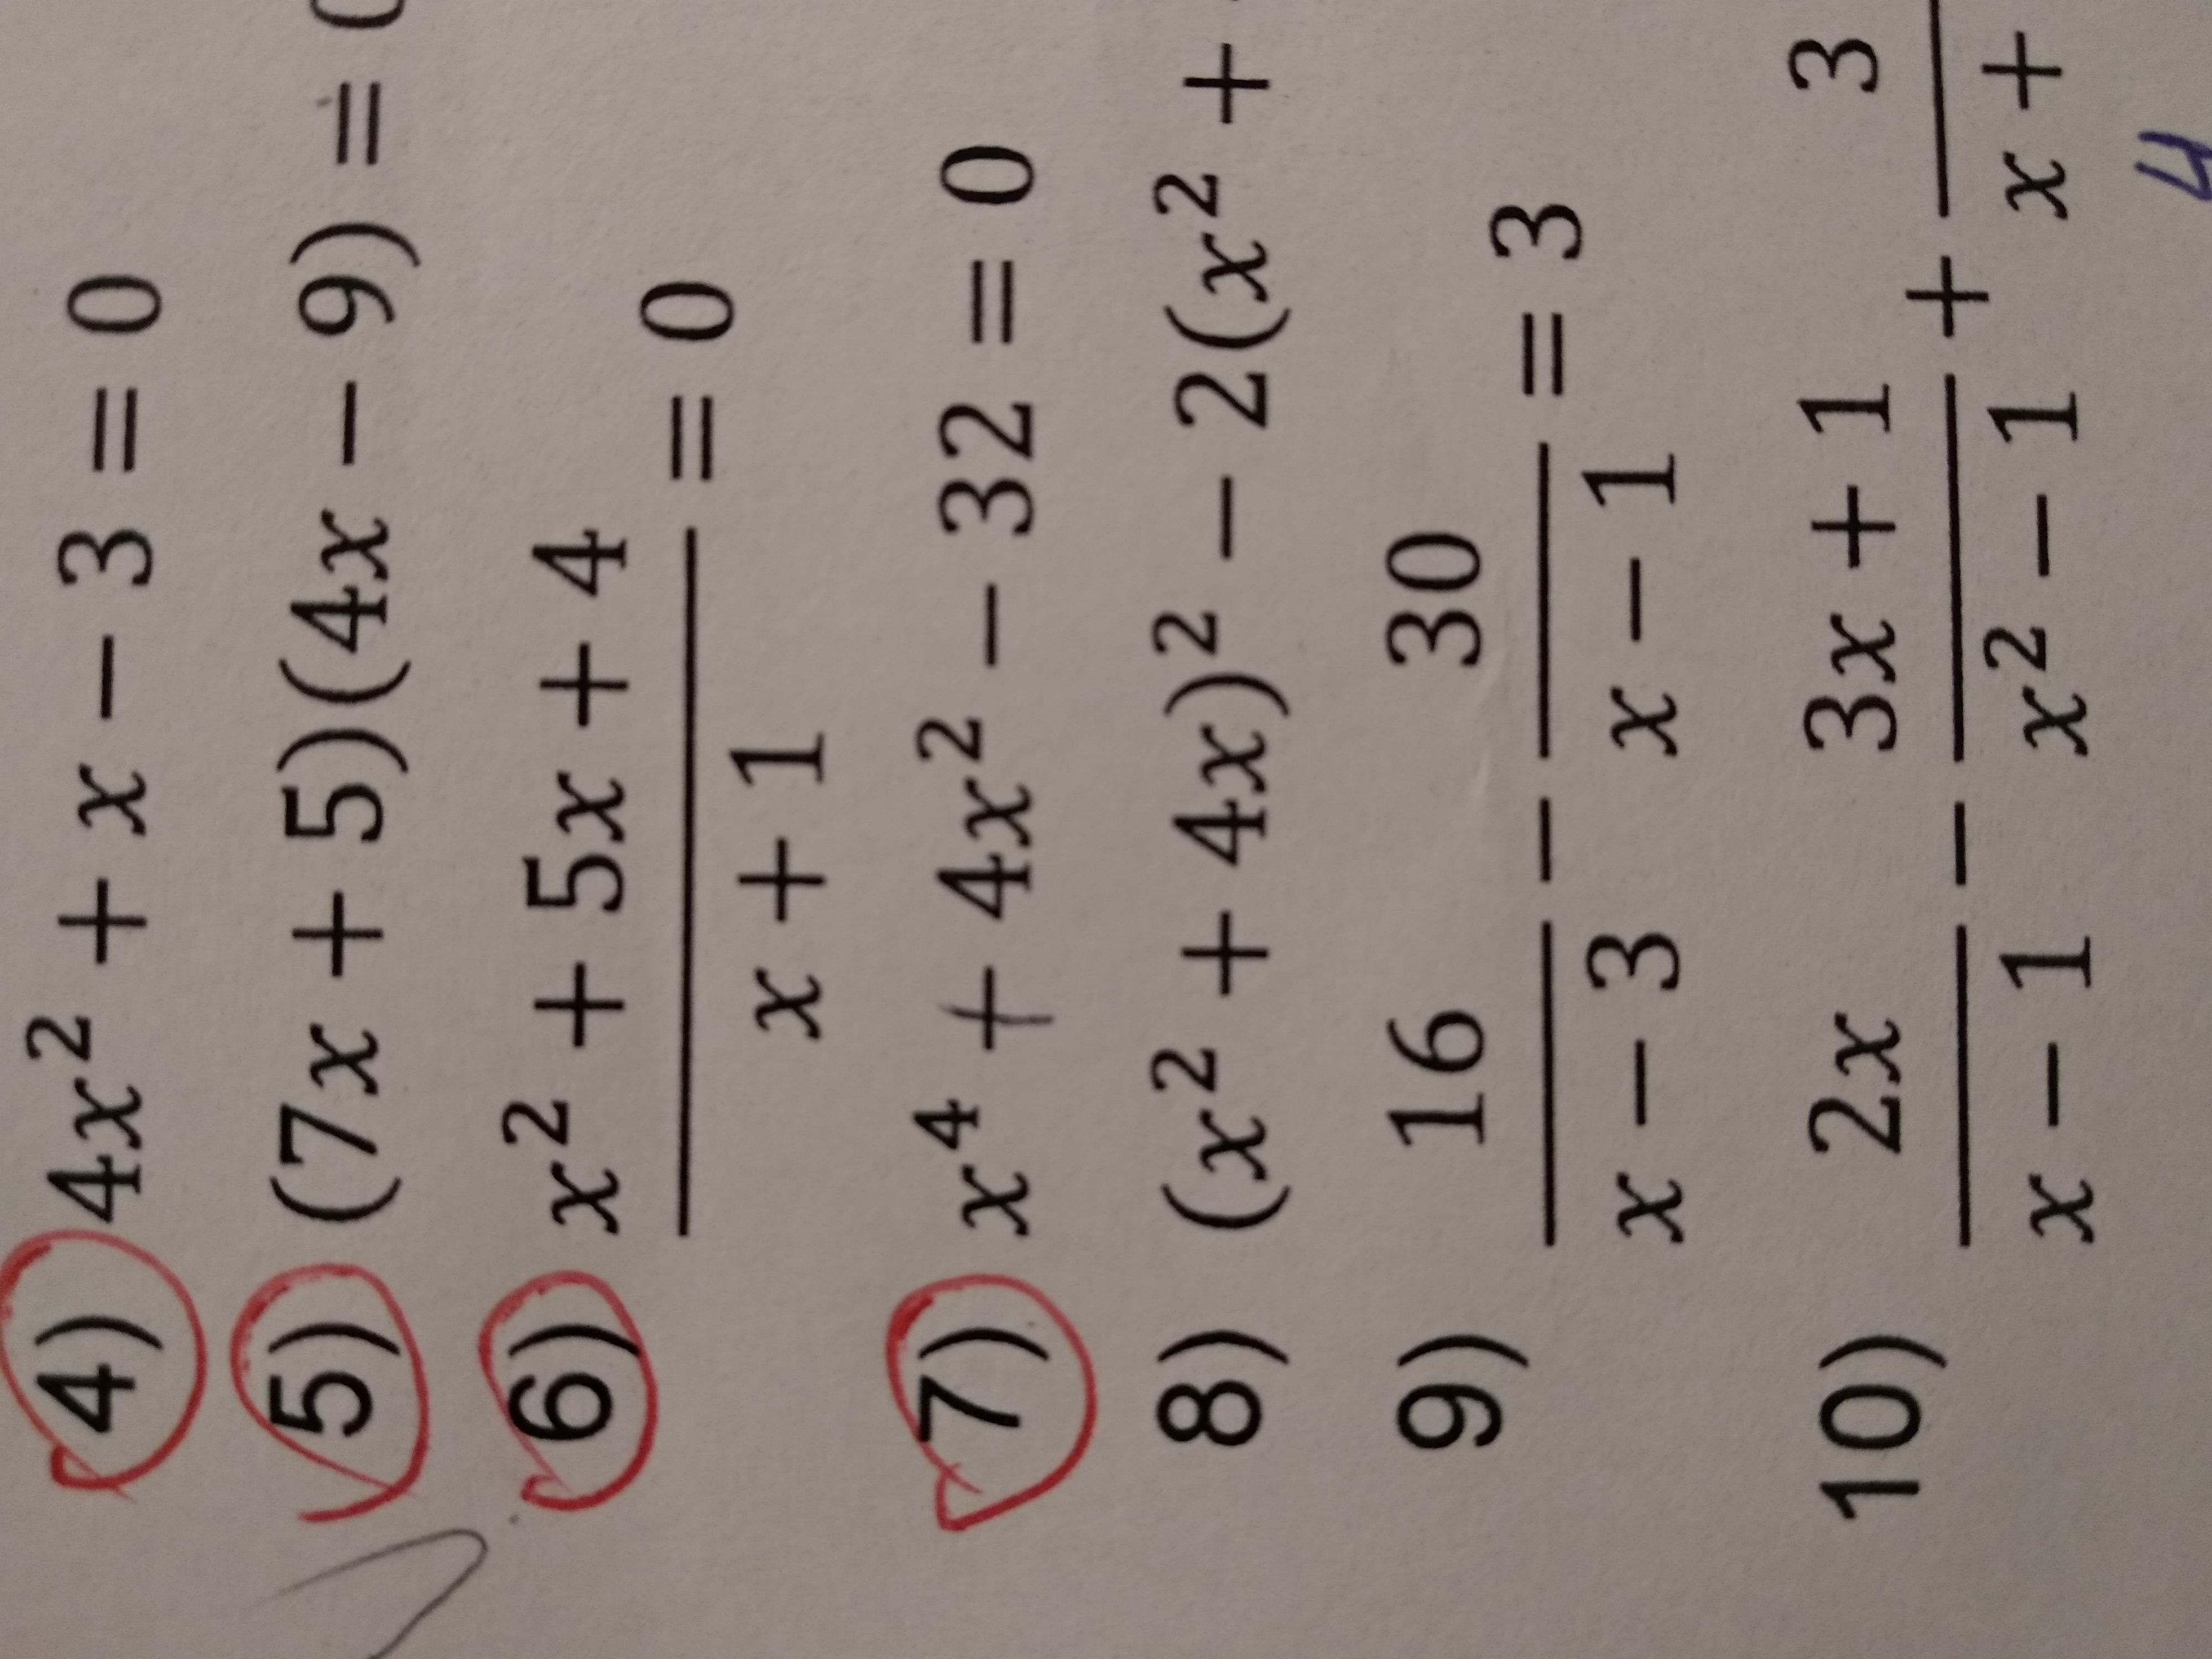 4) 4x² + x − 3 = 0
5) (7x + 5)(4x − 9) = 0
6) x² + 5x + 4
x + 1
= 0
7) x⁴ + 4x² − 32 = 0
8) (x² + 4x)² − 2(x² +
9) 16/(x − 3) − 30/(x − 1) = 3
10) 2x/(x − 1) − (3x + 1)/(x² − 1) + 3/(x +
4